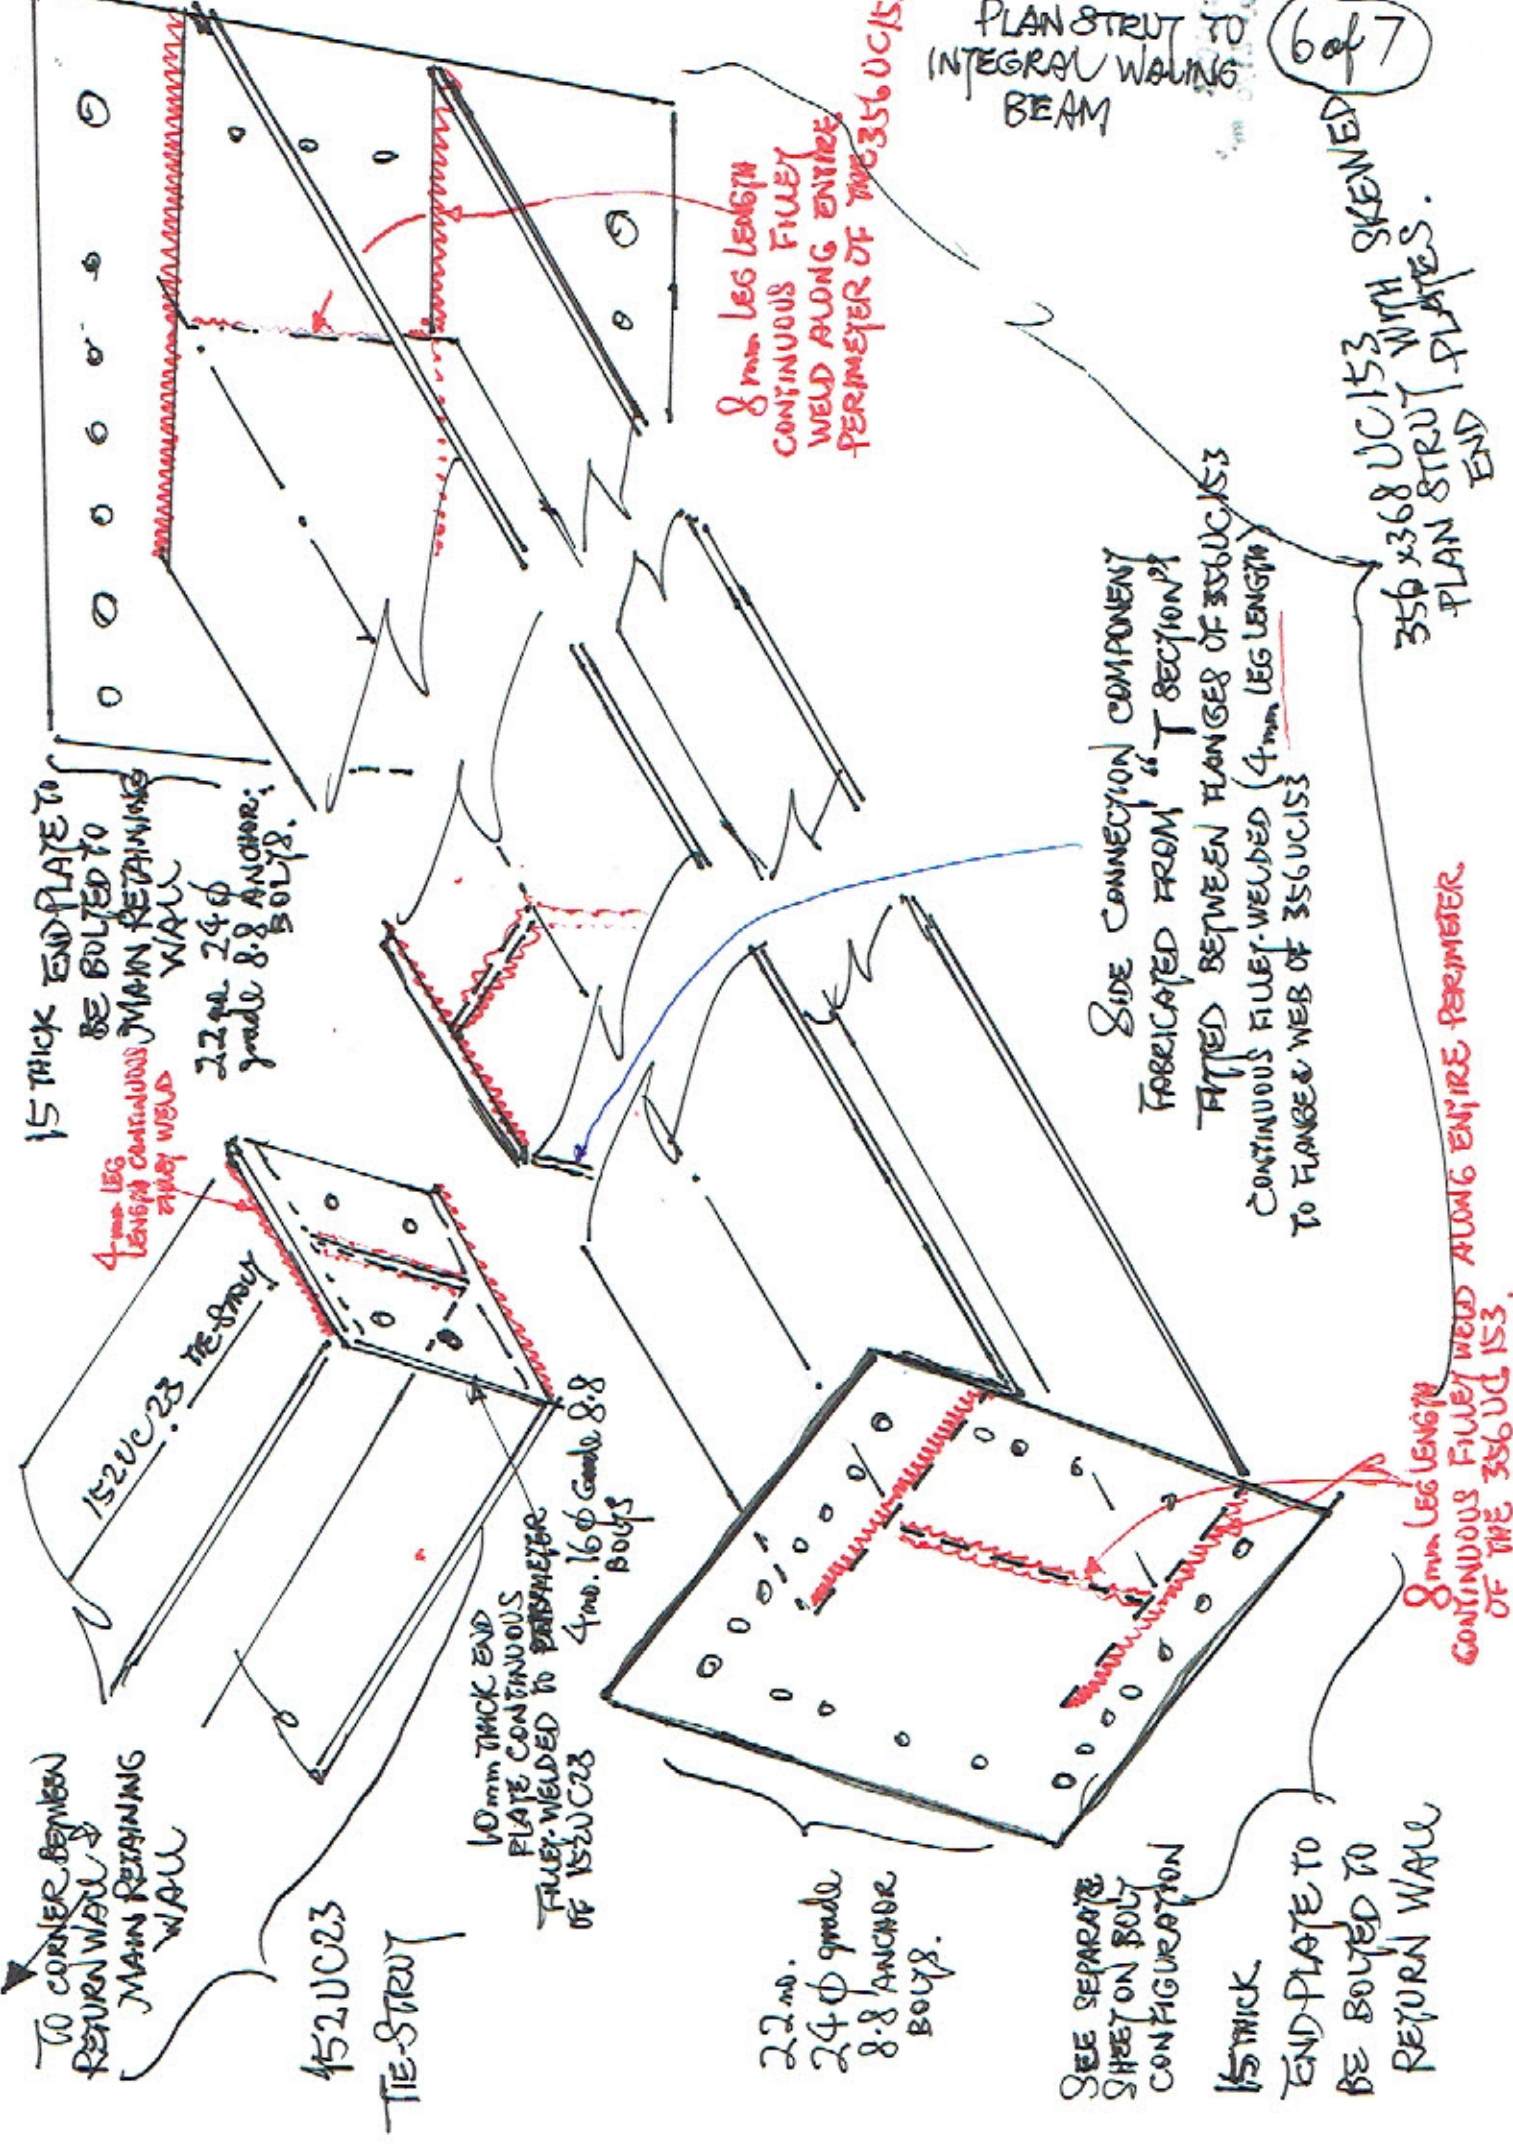 PLAN STRUT TO
INTEGRAL WALING
BEAM
6 of 7
15 THICK END PLATE TO
BE BOLTED TO
MAIN RETAINING
WALL
22 no 24φ
grade 8.8 ANCHOR
BOLTS.
8 mm LEG LENGTH
CONTINUOUS FILLET
WELD ALONG ENTIRE
PERIMETER OF THE 356 UC 153
356 x 368 UC 153
PLAN STRUT WITH SKEWED
END PLATES.
SIDE CONNECTION COMPONENT
FABRICATED FROM "T SECTION"
FITTED BETWEEN FLANGES OF 356UC153
CONTINUOUS FILLET-WELDED (4mm LEG LENGTH)
TO FLANGE & WEB OF 356UC153
4mm LEG
LENGTH CONTINUOUS
FILLET WELD
152UC23 TIE-STRUT
TO CORNER BETWEEN
RETURN WALL &
MAIN RETAINING
WALL
152UC23
TIE-STRUT
10mm THICK END
PLATE CONTINUOUS
FILLET-WELDED TO PERIMETER
OF 152UC23
4 no. 16φ Grade 8.8
BOLTS
22 no.
24φ grade
8.8 ANCHOR
BOLTS.
SEE SEPARATE
SHEET ON BOLT
CONFIGURATION
15 THICK
END-PLATE TO
BE BOLTED TO
RETURN WALL
8mm LEG LENGTH
CONTINUOUS FILLET WELD ALONG ENTIRE PERIMETER
OF THE 356 UC 153.